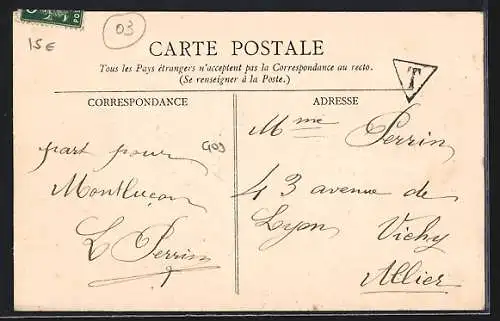 15€
03
CARTE POSTALE
Tous les Pays étrangers n'acceptent pas la Correspondance au recto.
(Se renseigner à la Poste.)
T
CORRESPONDANCE
part pour
Montluçon
L Perrin
G09
ADRESSE
Mme Perrin
43 avenue de
Lyon
Vichy
Allier